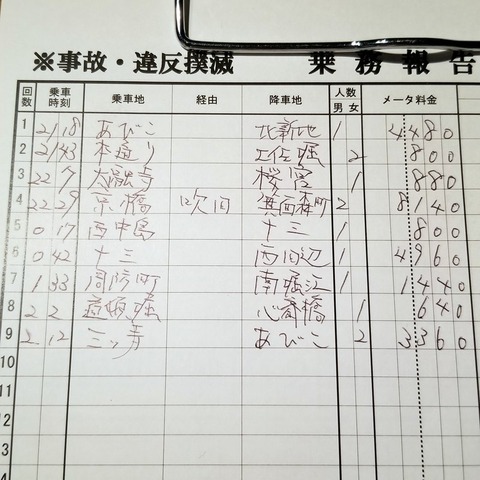 ※事故・違反撲滅 乗務報告
回数 乗車時刻 乗車地 経由 降車地 人数 男 女 メータ料金
1 21 18 あびこ 北新地 1 4480
2 21 43 本通り 土佐堀 2 800
3 22 7 太融寺 桜宮 1 880
4 22 29 京橋 吹田 箕面森町 2 8140
5 0 17 西中島 十三 1 800
6 0 42 十三 西田辺 1 4960
7 1 33 周防町 南堀江 1 1440
8 2 2 道頓堀 心斎橋 1 640
9 2 12 三ッ寺 あびこ 2 3360
10
11
12
13